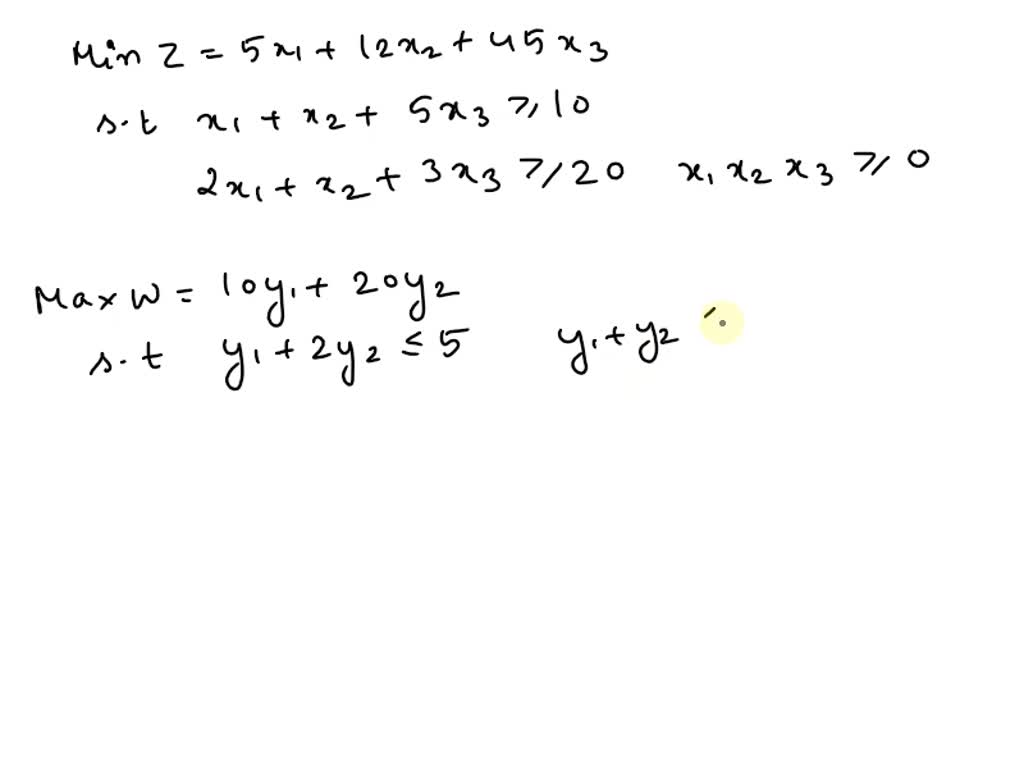 Min Z = 5x₁ + 12x₂ + 45x₃
s.t x₁ + x₂ + 5x₃ ≥ 10
2x₁ + x₂ + 3x₃ ≥ 20 x₁ x₂ x₃ ≥ 0
Max W = 10y₁ + 20y₂
s.t y₁ + 2y₂ ≤ 5 y₁ + y₂